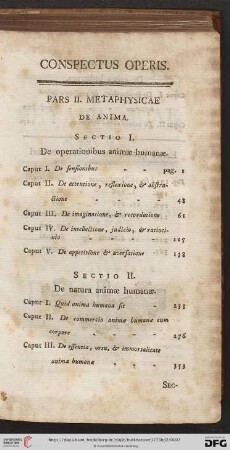 CONSPECTUS OPERIS.
PARS II. METAPHYSICAE
DE ANIMA.
SECTIO I.
De operationibus animæ humanæ.
Caput I. De ſenſionibus - - pag. 1
Caput II. De attentione, reflexione, & abſtra-
ctione - - - 48
Caput III. De imaginatione, & recordatione 61
Caput IV. De intellectione, judicio, & ratioci-
nio - - -
Caput V. De appetitione & averſatione 138
SECTIO II.
De natura animæ humanæ.
Caput I. Quid anima humana ſit - 233
Caput II. De commercio animæ humanæ cum
corpore - - - - 276
Caput III. De eſſentia, ortu, & immortalitate
animæ humanæ - - - 353
SEC-
DFG